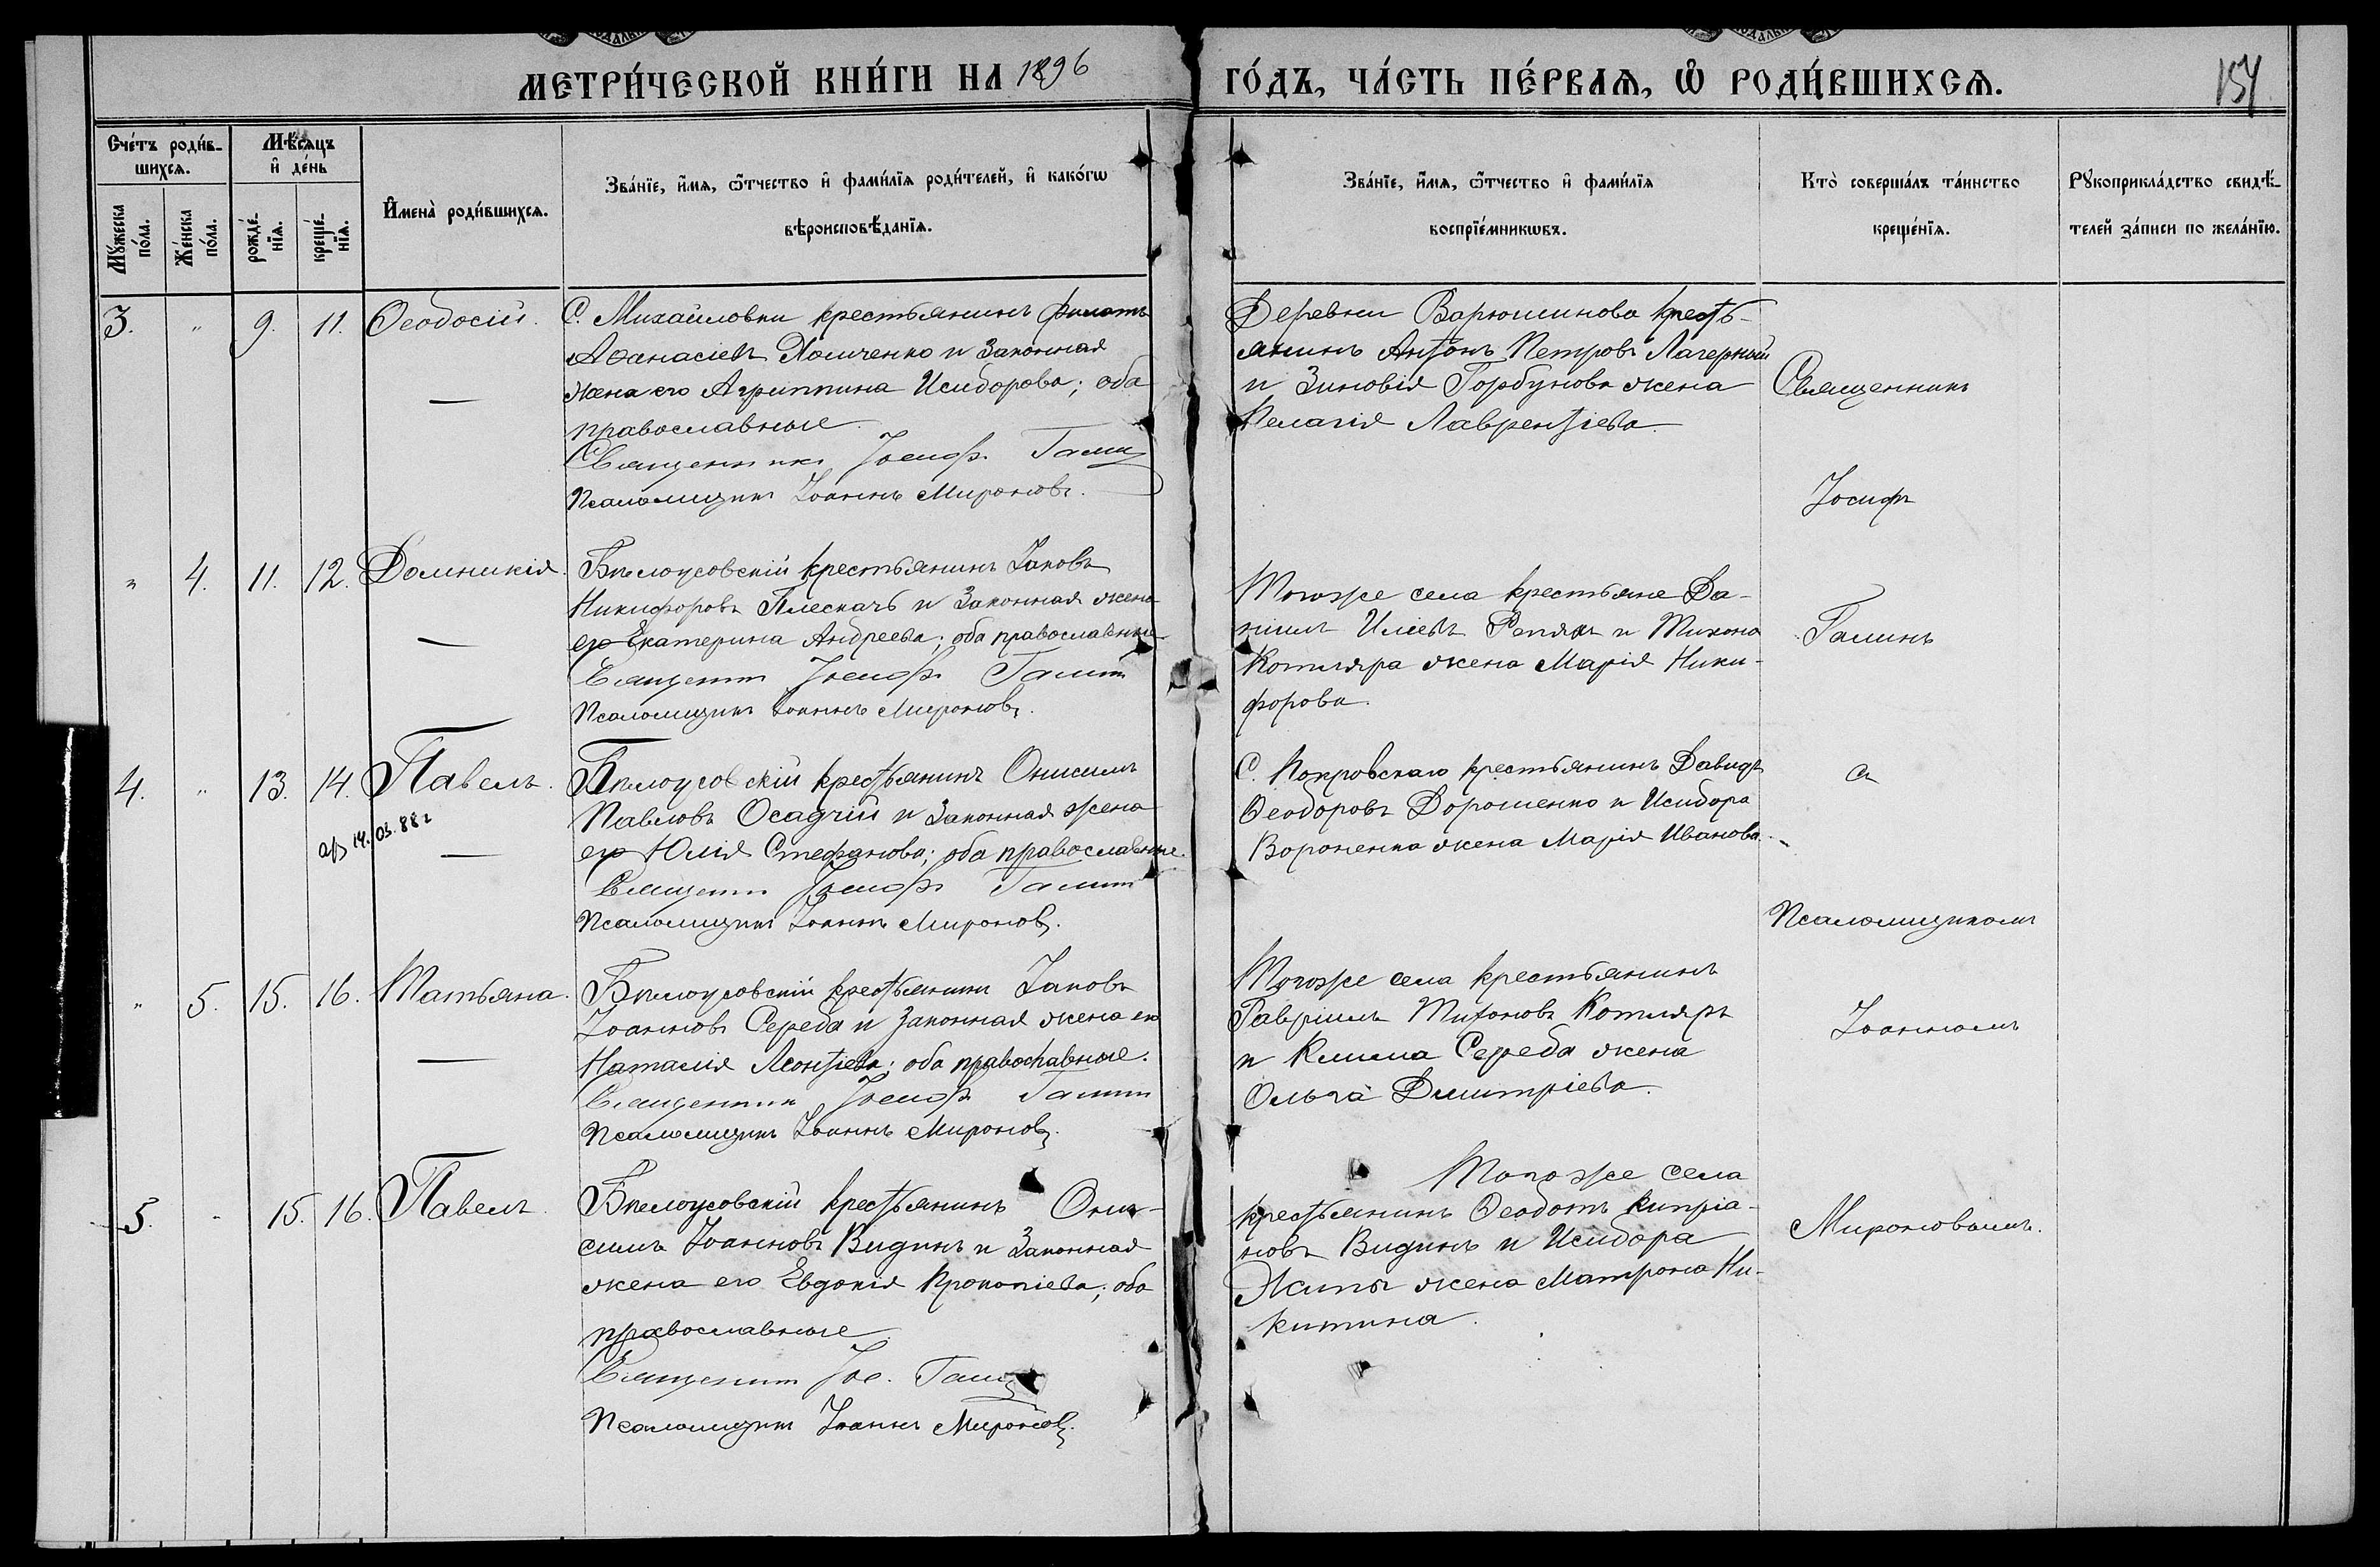 МЕТРИ́ЧЕСКОЙ КНИ́ГИ НА 1896 ГО́ДЪ, ЧА́СТЬ ПЕ́РВАѦ, Ѡ҆ РОДИ́ВШИХСѦ.
154
Сче́тъ роди́в-
шихсѧ.
Мꙋ́жеска
по́ла.
Же́нска
по́ла.
Мѣ́сѧцъ
и҆ де́нь
рожде́-
нїѧ.
креще́-
нїѧ.
И҆мена̀ роди́вшихсѧ.
Зва́нїе, и҆́мѧ, ѻ҆́тчество и҆ фами́лїѧ роди́телей, и҆ како́гѡ
вѣроисповѣ́данїѧ.
Зва́нїе, и҆́мѧ, ѻ҆́тчество и҆ фами́лїѧ
воспрїе́мникѡвъ.
Кто̀ соверша́лъ та́инство
креще́нїѧ.
Рꙋкоприкла́дство свидѣ́-
телей за́писи по жела́нїю.
3. " 9. 11. Ѳеодосій.
С. Михайловки крестьянинъ Филатъ
Аѳанасіевъ Хомченко и законная
жена его Агриппина Исидорова; оба
православные.
Священникъ Іосифъ Галинъ
Псаломщикъ Іоаннъ Мироновъ.
Деревни Варюшиново кресть-
янинъ Антонъ Петровъ Лагерный
и Зиновія Горбунова жена
Пелагія Лаврентіева.
Священникъ
Іосифъ
" 4. 11. 12. Домникія.
Бѣлоусовскій крестьянинъ Іаковъ
Никифоровъ Плескачъ и законная жена
его Екатерина Андреева; оба православные.
Священникъ Іосифъ Галинъ
Псаломщикъ Іоаннъ Мироновъ.
Тогоже села крестьяне Да-
ніилъ Иліевъ Репяхъ и Тихона
Котляра жена Марія Ники-
форова.
Галинъ
4. " 13. 14. Павелъ.
14.03.88г
Бѣлоусовскій крестьянинъ Онисимъ
Павловъ Осадчій и законная жена
его Юлія Стефанова; оба православные.
Священникъ Іосифъ Галинъ
Псаломщикъ Іоаннъ Мироновъ.
С. Покровскаго крестьянинъ Давидъ
Ѳеодоровъ Дорошенко и Исидора
Вороненка жена Марія Иванова.
съ
Псаломщикомъ
" 5. 15. 16. Татьяна.
Бѣлоусовскій крестьянинъ Іаковъ
Іоанновъ Середа и законная жена его
Наталія Леонтіева; оба православные.
Священникъ Іосифъ Галинъ
Псаломщикъ Іоаннъ Мироновъ.
Тогоже села крестьянинъ
Гавріилъ Тихоновъ Котляръ
и Клима Середа жена
Ольга Димитріева.
Іоанномъ
5. " 15. 16. Павелъ.
Бѣлоусовскій крестьянинъ Они-
симъ Іоанновъ Видинъ и законная
жена его Евдокія Прокопіева; оба
православные.
Священникъ Іос. Галинъ
Псаломщикъ Іоаннъ Мироновъ.
Тогоже села
крестьянинъ Ѳеодотъ Кипріа-
новъ Видинъ и Исидора
Жилы жена Матрона Ни-
китина.
Мироновымъ.